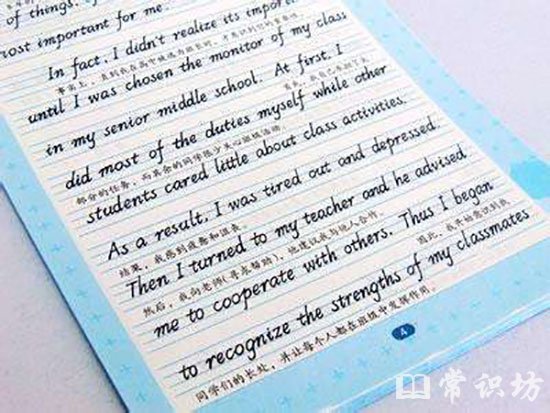 of things.
most important for me.
In fact, I didn't realize its import
事实上，直到我在高中被选为班长时，才意识到它的重要性。
until I was chosen the monitor of my class
in my senior middle school. At first, I
did most of the duties myself while other
部分的任务，而其余的同学很少关心班级活动。
students cared little about class activities.
As a result, I was tired out and depressed.
结果，我感到疲惫和沮丧。
Then I turned to my teacher and he advised
然后，我向老师(寻求帮助)，他建议我与他人合作。
me to cooperate with others. Thus I began
因此，我开始意识到我
to recognize the strengths of my classmates
同学们的长处，并让每个人都在班级中发挥作用。
4
常识坊